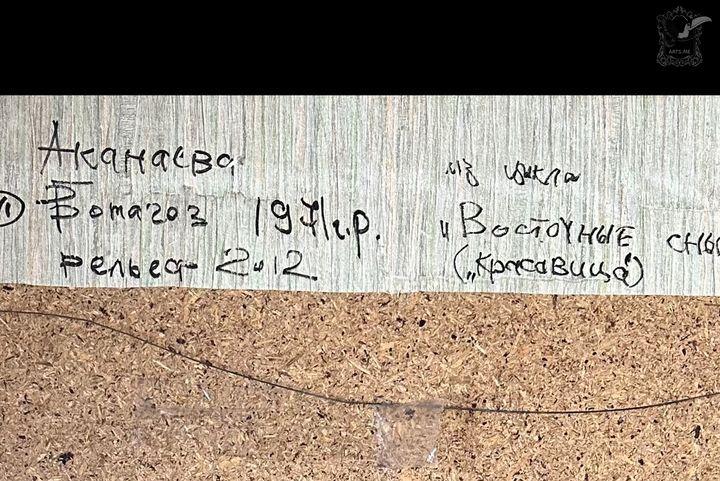 Аканаева
① Ботагоз 1971г.р.
рельеф 2012.
из цикла
"Восточные сны
("красавица")
ARTS.ME